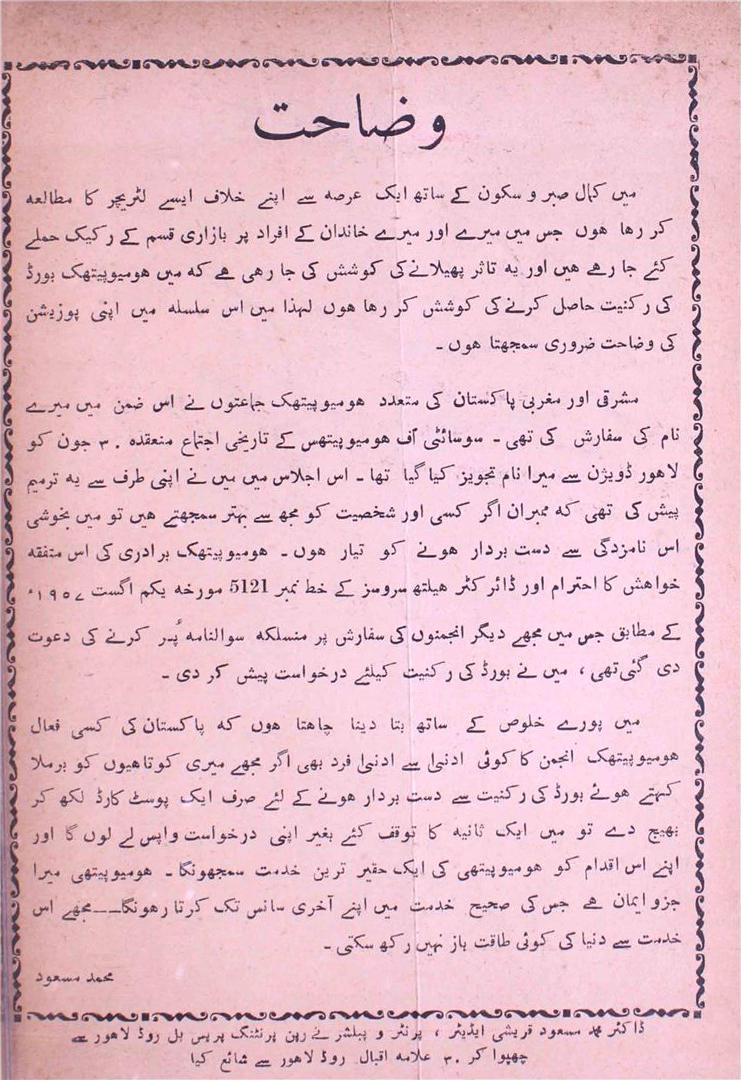 وضاحت
میں کمال صبر و سکون کے ساتھ ایک عرصہ سے اپنے خلاف ایسے لٹریچر کا مطالعہ
کر رہا ہوں جس میں میرے اور میرے خاندان کے افراد پر بازاری قسم کے رکیک حملے
کئے جا رہے ہیں اور یہ تاثر پھیلانے کی کوشش کی جا رہی ہے کہ میں ہومیوپیتھک بورڈ
کی رکنیت حاصل کرنے کی کوشش کر رہا ہوں لہذا میں اس سلسلہ میں اپنی پوزیشن
کی وضاحت ضروری سمجھتا ہوں ۔
مشرقی اور مغربی پاکستان کی متعدد ہومیوپیتھک جماعتوں نے اس ضمن میں میرے
نام کی سفارش کی تھی ۔ سوسائٹی آف ہومیوپیتھس کے تاریخی اجتماع منعقدہ ۳۰ جون کو
لاہور ڈویژن سے میرا نام تجویز کیا گیا تھا ۔ اس اجلاس میں میں نے اپنی طرف سے یہ ترمیم
پیش کی تھی کہ ممبران اگر کسی اور شخصیت کو مجھ سے بہتر سمجھتے ہیں تو میں بخوشی
اس نامزدگی سے دست بردار ہونے کو تیار ہوں ۔ ہومیوپیتھک برادری کی اس متفقہ
خواہش کا احترام اور ڈائرکٹر ہیلتھ سروسز کے خط نمبر 5121 مورخہ یکم اگست ۱۹۵۷ء
کے مطابق جس میں مجھے دیگر انجمنوں کی سفارش پر منسلکہ سوالنامہ پُر کرنے کی دعوت
دی گئی تھی ، میں نے بورڈ کی رکنیت کیلئے درخواست پیش کر دی ۔
میں پورے خلوص کے ساتھ بتا دینا چاہتا ہوں کہ پاکستان کی کسی فعال
ہومیوپیتھک انجمن کا کوئی ادنیٰ سے ادنیٰ فرد بھی اگر مجھے میری کوتاہیوں کو برملا
کہتے ہوئے بورڈ کی رکنیت سے دست بردار ہونے کے لئے صرف ایک پوسٹ کارڈ لکھ کر
بھیج دے تو میں ایک ثانیہ کا توقف کئے بغیر اپنی درخواست واپس لے لوں گا اور
اپنے اس اقدام کو ہومیوپیتھی کی ایک حقیر ترین خدمت سمجھونگا ۔ ہومیوپیتھی میرا
جزو ایمان ہے جس کی صحیح خدمت میں اپنے آخری سانس تک کرتا رہونگا ۔۔۔ مجھے اس
خدمت سے دنیا کی کوئی طاقت باز نہیں رکھ سکتی ۔
محمد مسعود
ڈاکٹر محمد مسعود قریشی ایڈیٹر ، پرنٹر و پبلشر نے رپن پرنٹنگ پریس بل روڈ لاہور سے
چھپوا کر ۳۰ علامہ اقبال روڈ لاہور سے شائع کیا